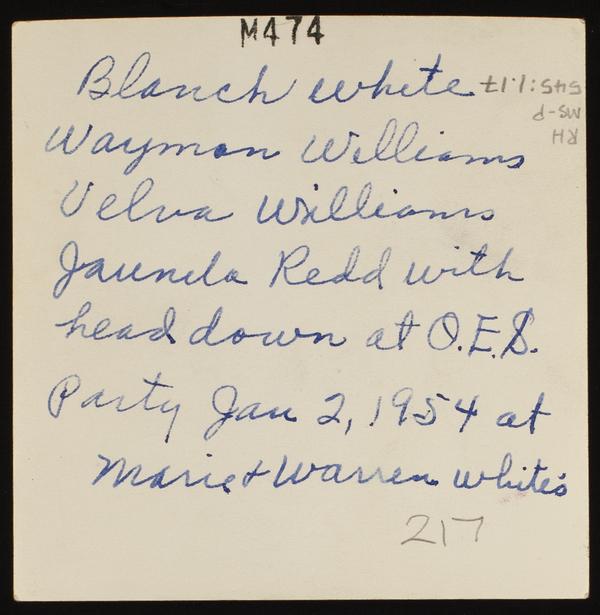 M474
Blanch white
Waymon Williams
Velva Williams
Jaunela Redd with
head down at O.E.S.
Party Jan 2, 1954 at
Marie & Warren White's
217
RH
MS-P
545:1.17